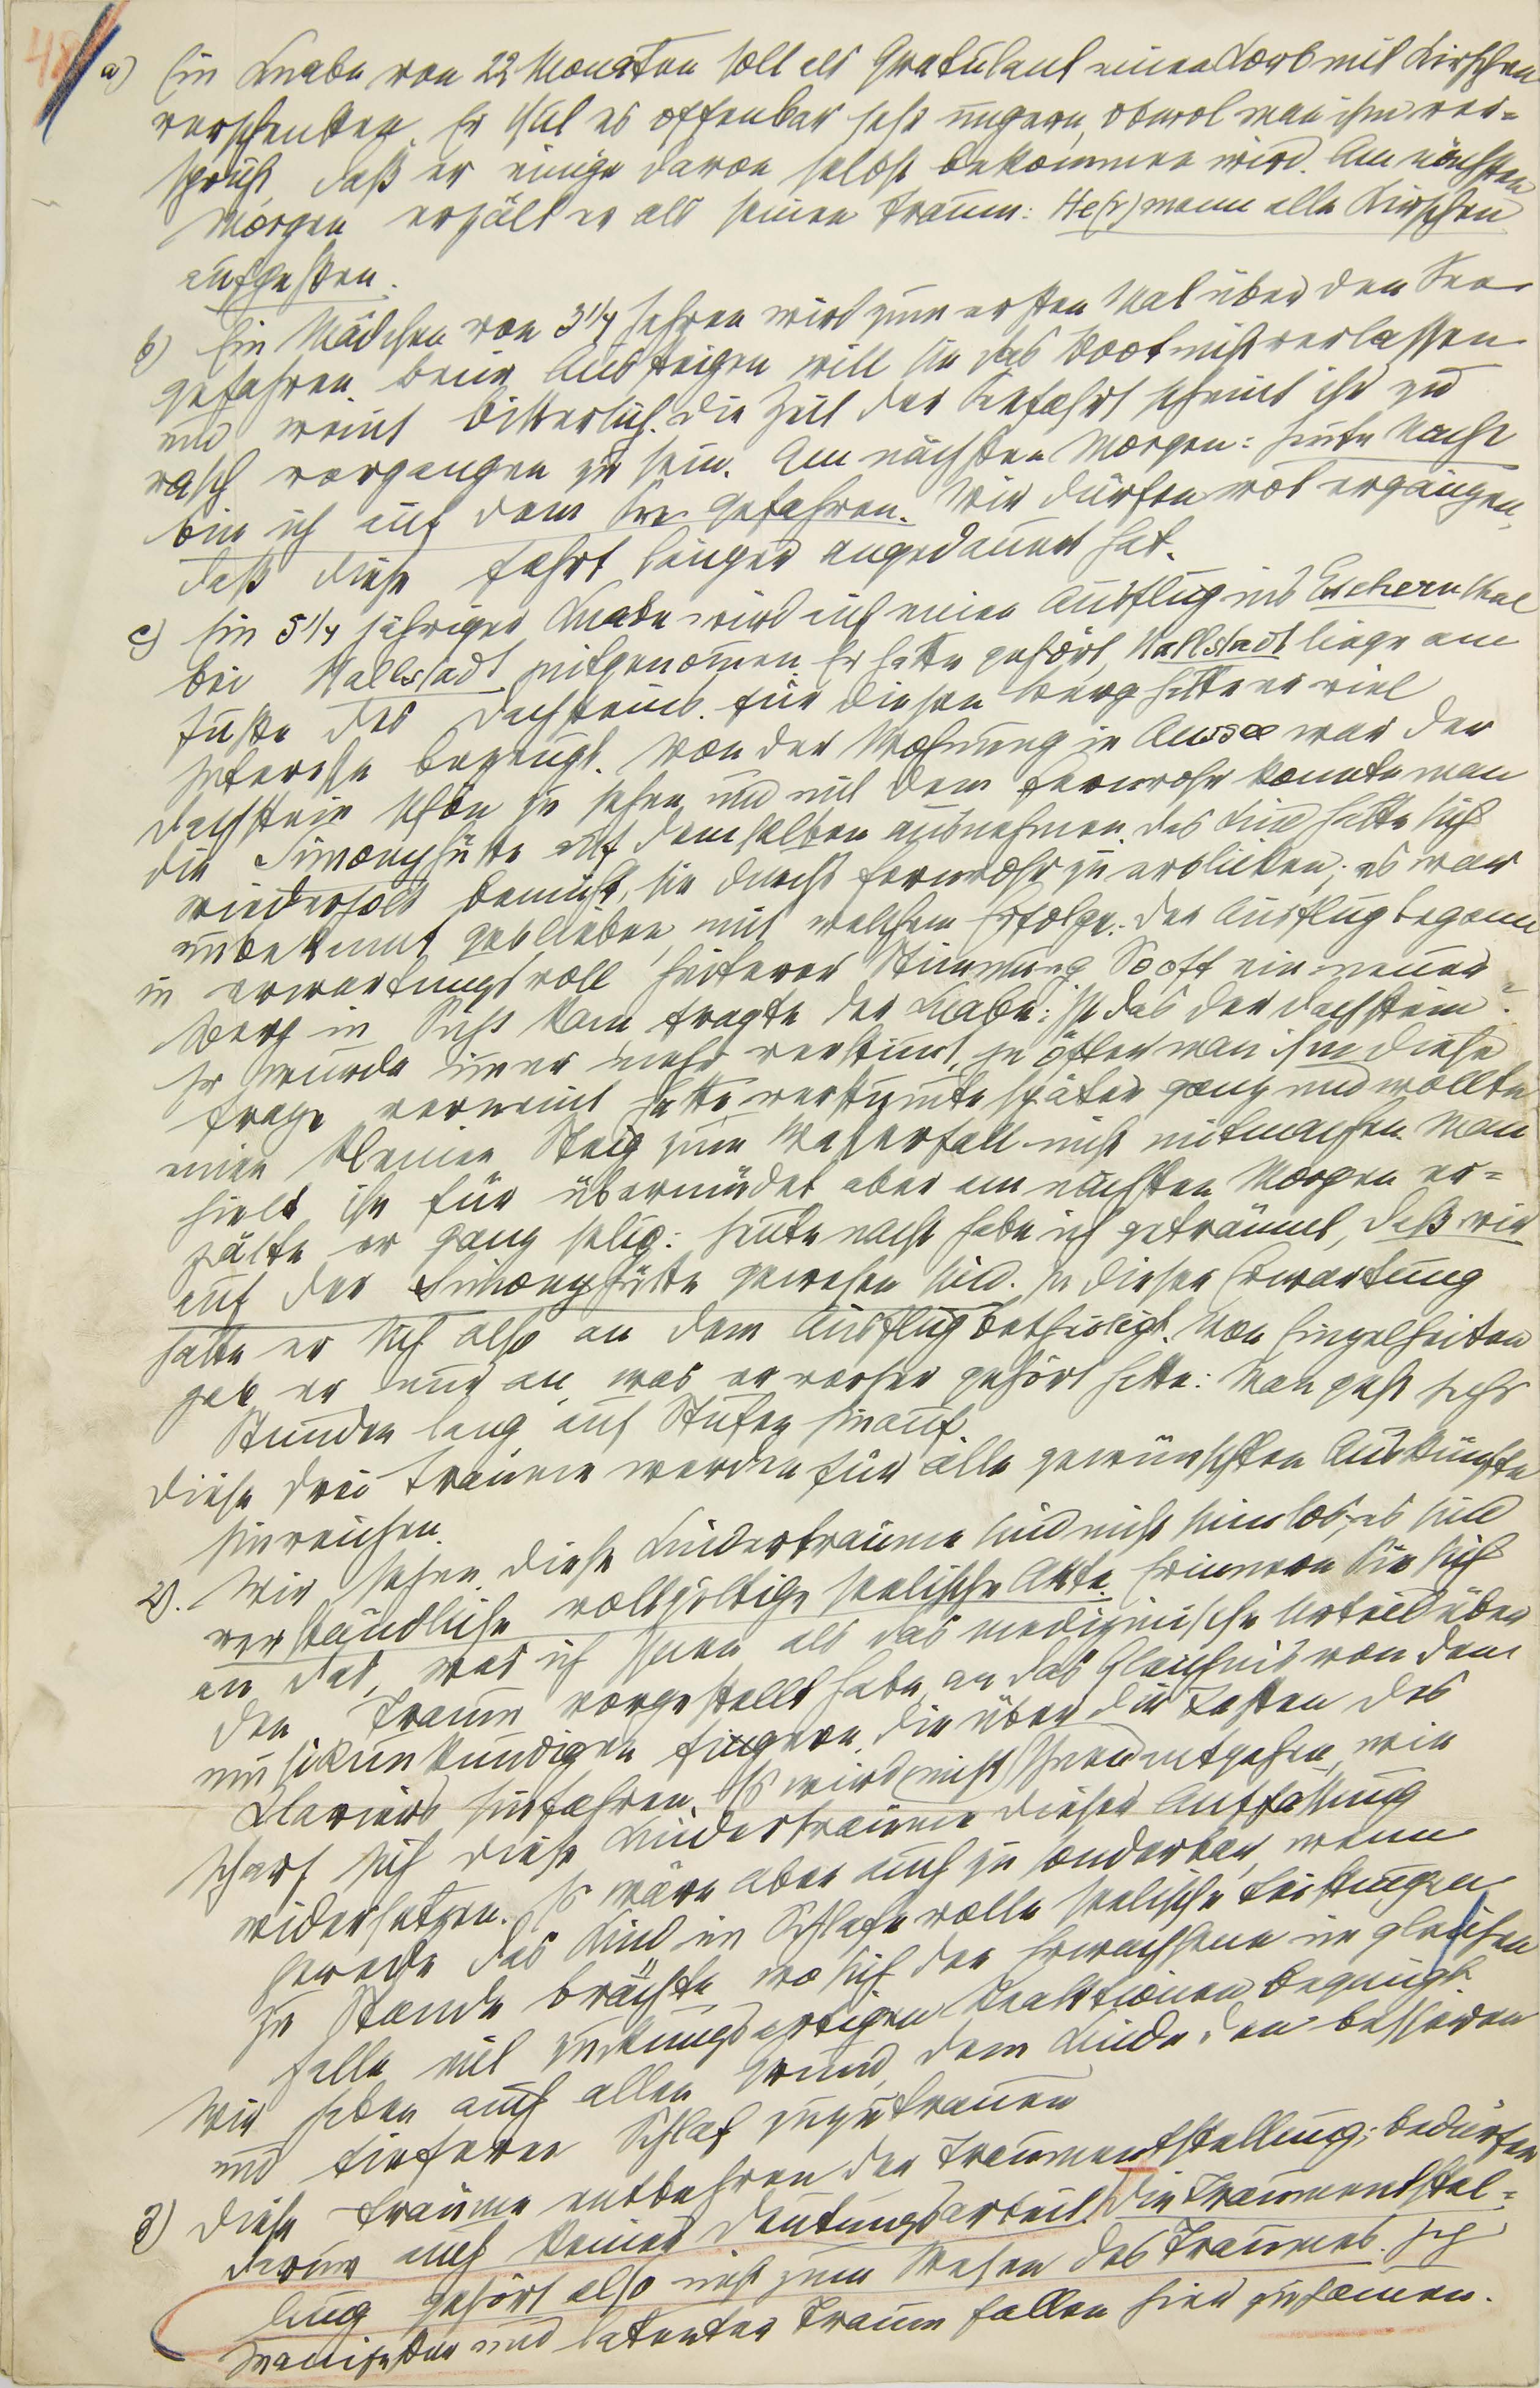 48
a) Ein Knabe von 22 Monaten soll als Gratulant einen Korb mit Kirschen
verschenken. Er thut es offenbar sehr ungern, obwol man ihm ver=
spricht, daß er einige davon selbst bekommen wird. Am nächsten
Morgen erzält er als seinen Traum: He(r)mann alle Kirschen
aufgessen.
b) Ein Mädchen von 3 1/4 Jahren wird zum ersten Mal über den See
gefahren. Beim Aussteigen will sie das Boot nicht verlassen
und weint bitterlich. Die Zeit der Seefahrt scheint ihr zu
rasch vergangen zu sein. Am nächsten Morgen: Heute Nacht
bin ich auf dem See gefahren. Wir dürfen wol ergänzen,
daß diese Fahrt länger angedauert hat.
c) Ein 5 1/4 jähriger Knabe wird auf einen Ausflug ins Escherntal
bei Hallstadt mitgenommen. Er hatte gehört, Hallstadt liege am
Fuße des Dachsteins. Für diesen Berg hatte er viel
Interesse bezeugt. Von der Wohnung in Aussee war der
Dachstein schön zu sehen und mit dem Fernrohr konnte man
die Simonyhütte auf demselben ausnehmen. Das Kind hatte sich
wiederholt bemüht, sie durchs Fernrohr zu erblicken; es war
unbekannt geblieben, mit welchem Erfolge. Der Ausflug begann
in erwartungsvoll heiterer Stimmung. So oft ein neuer
Berg in Sicht kam, fragte der Knabe: Ist das der Dachstein?
Er wurde immer mehr verstimmt, je öfter man ihm diese
Frage verneint hatte, verstummte später ganz und wollte
einen kleinen Steig zum Wasserfall nicht mitmachen. Man
hielt ihn für übermüdet aber am nächsten Morgen er=
zälte er ganz selig: Heute nacht habe ich geträumt, daß wir
auf der Simonyhütte gewesen sind. In dieser Erwartung
hatte er sich also an dem Ausflug betheiligt. Von Einzelheiten
gab er nur an, was er vorher gehört hatte: Man geht sechs
Stunden lang auf Stufen hinauf.
Diese drei Träume werden für alle gewünschten Auskünfte
hinreichen.
2). Wir sehen, diese Kinderträume sind nicht sinnlos; es sind
verständliche vollgültige seelische Akte. Erinnern Sie sich
an das, was ich Ihnen als das medizinische Urteil über
den Traum vorgestellt habe, an das Gleichnis von den
musikunkundigen Fingern, die über die Tasten des
Klaviers hinfahren. Es wird nicht Ihnen entgehen, wie
scharf sich diese Kinderträume dieser Auffassung
widersetzen. Es wäre aber auch zu sonderbar, wenn
gerade das Kind im Schlafe volle seelische Leistungen
zu Stande brächte, wo sich der Erwachsene im gleichen
Falle mit zuckungsartigen Reaktionen begnügt.
Wir haben auch allen Grund, dem Kinde den besseren
und tieferen Schlaf zuzutrauen
3) Diese Träume entbehren der Traumentstellung; bedürfen
darum auch keiner Deutungsarbeit. Die Traumentstel=
lung gehört also nicht zum Wesen des Traumes.
Manifester und latenter Traum fallen hier zusammen.